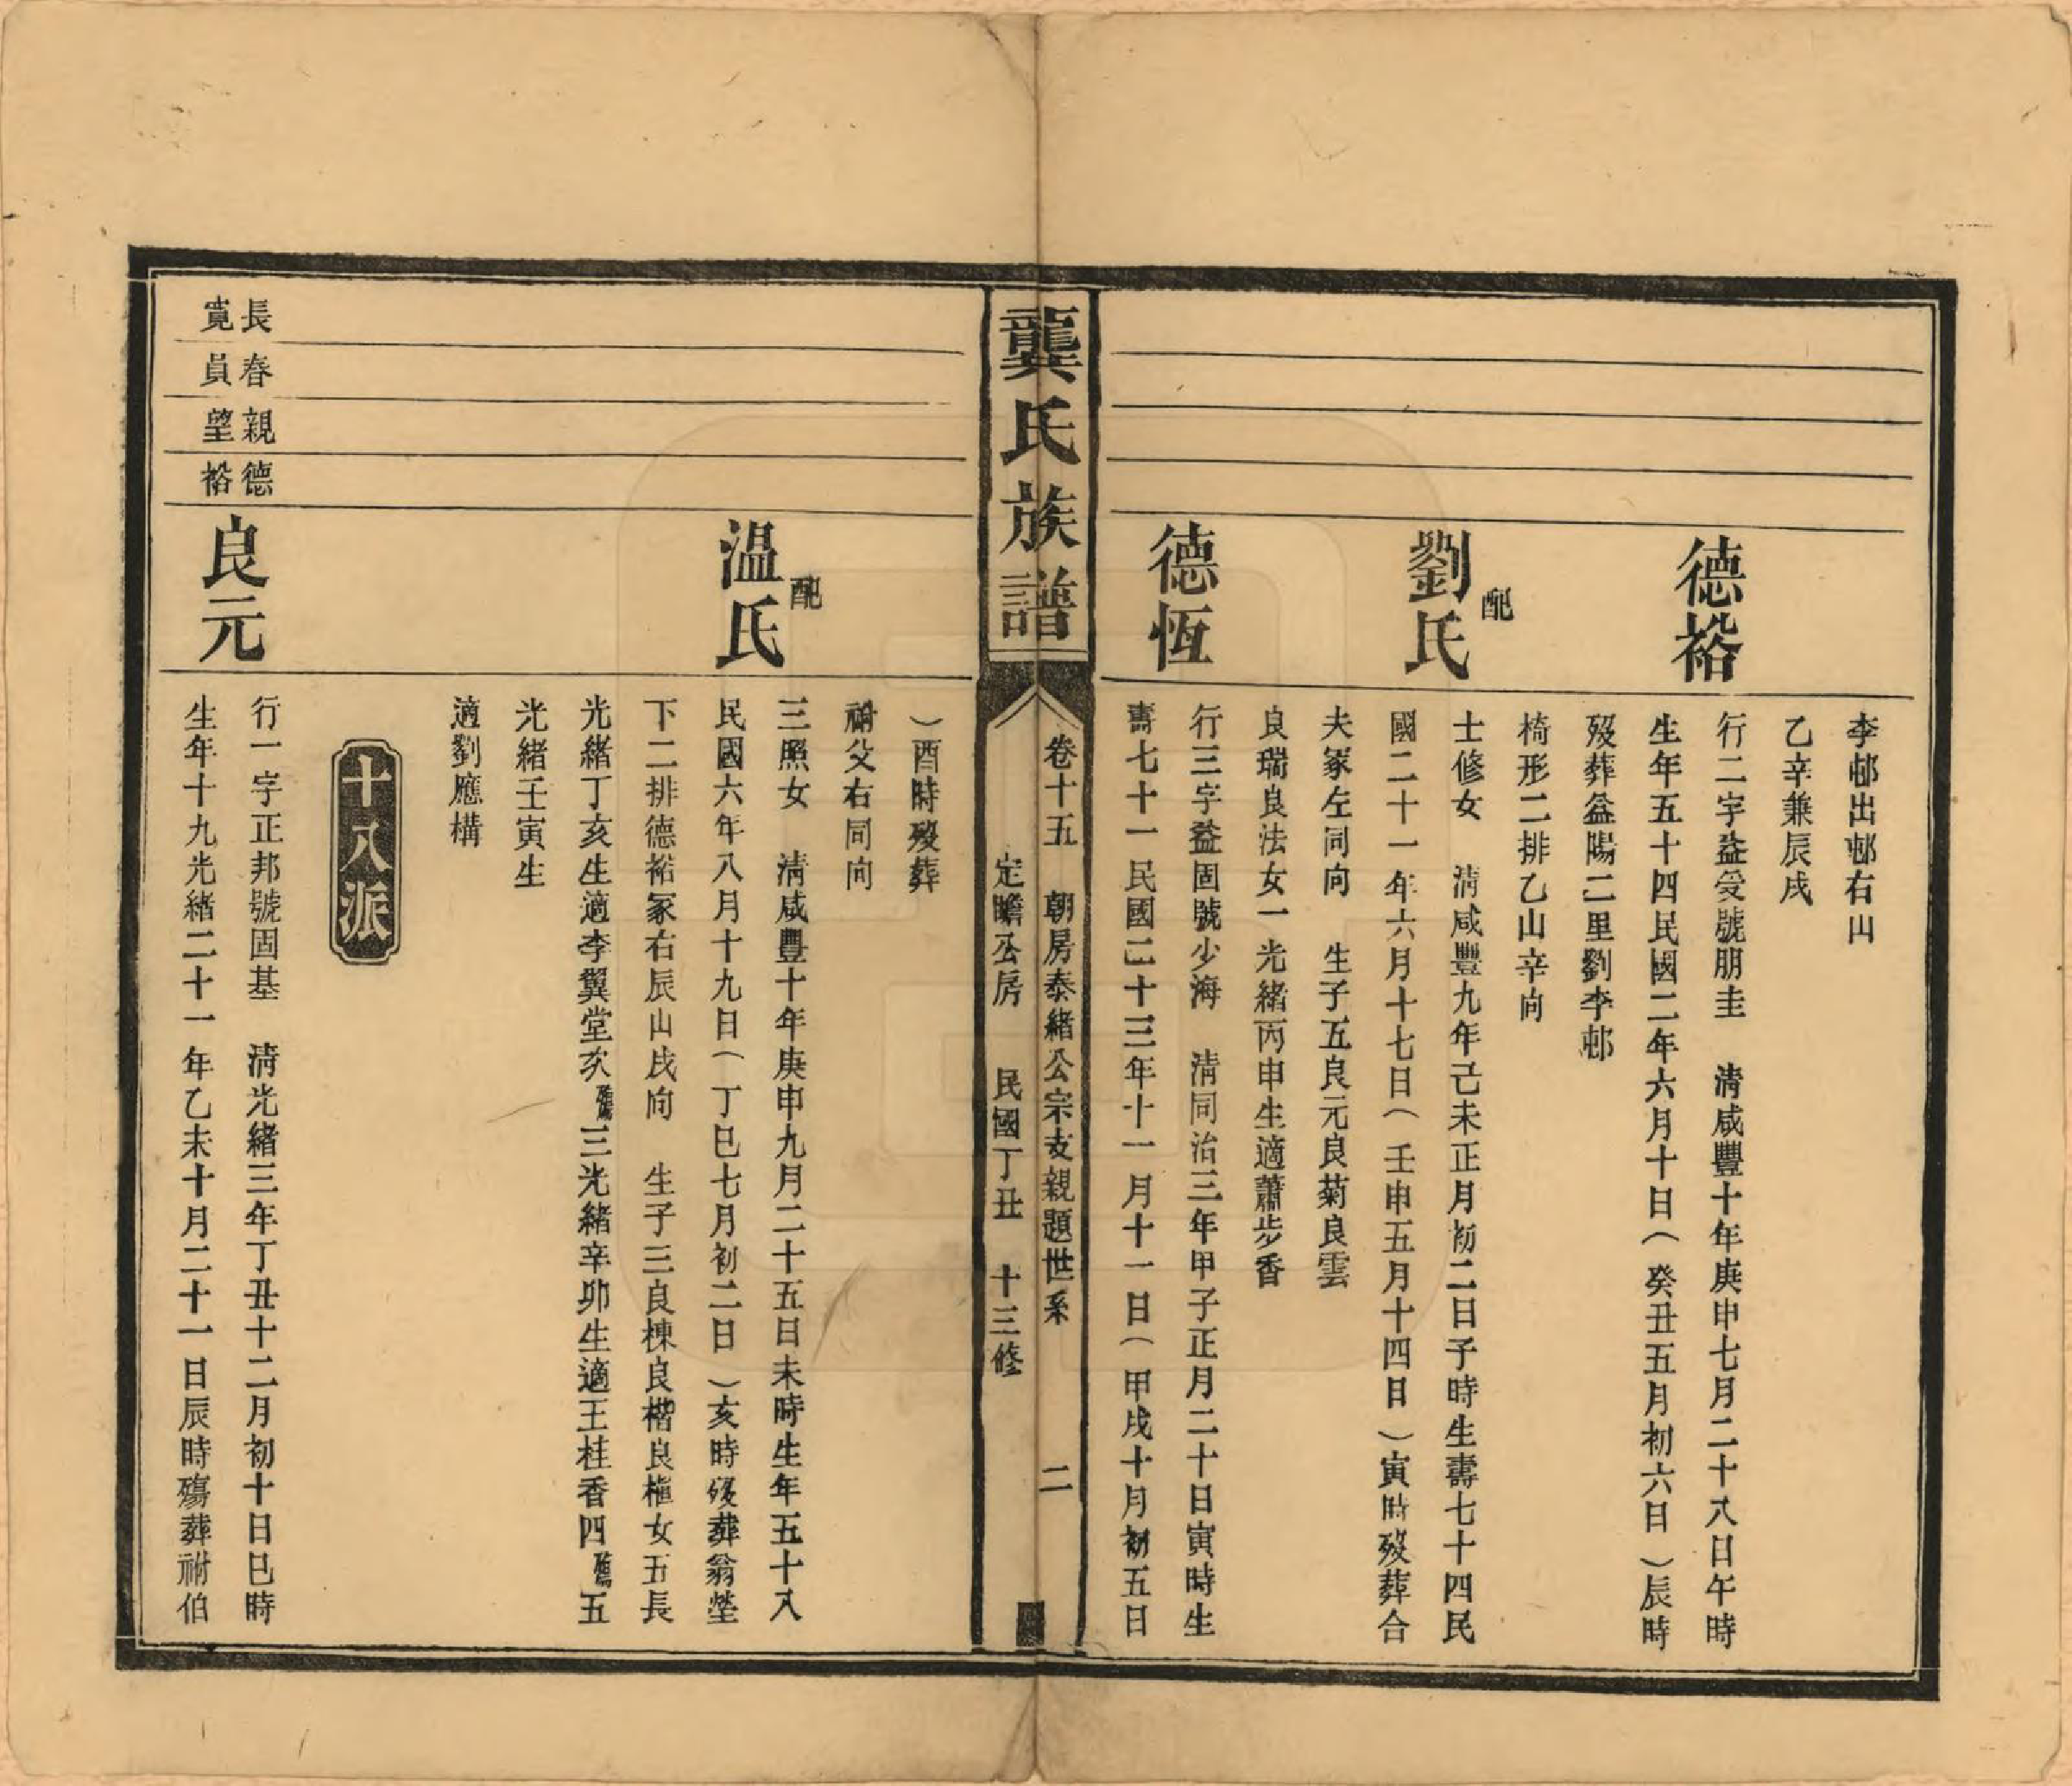 李邨出邨右山
乙辛兼辰戌
德裕
行二字益受號朋圭 淸咸豐十年庚申七月二十八日午時
生年五十四民國二年六月十日（癸丑五月初六日）辰時
歿葬益陽二里劉李邨
椅形二排乙山辛向
配
劉氏
士修女 淸咸豐九年己未正月初二日子時生壽七十四民
國二十一年六月十七日（壬申五月十四日）寅時歿葬合
夫冢左同向 生子五良元良菊良雲
良瑞良法女一光緒丙申生適蕭步香
德恆
行三字益固號少海 淸同治三年甲子正月二十日寅時生
壽七十一民國二十三年十一月十一日（甲戌十月初五日
龔氏族譜
卷十五 朝房泰緒公宗支親題世系 二
定瞻公房 民國丁丑 十三修
）酉時歿葬
祔父右同向
配
溫氏
三照女 淸咸豐十年庚申九月二十五日未時生年五十八
民國六年八月十九日（丁巳七月初二日）亥時歿葬翁塋
下二排德裕冢右辰山戌向 生子三良棟良楷良植女五長
光緒丁亥生適李翼堂次殤三光緒辛卯生適王桂香四殤五
光緒壬寅生
適劉應構
十八派
長春親德
寬員望裕
良元
行一字正邦號固基 淸光緒三年丁丑十二月初十日巳時
生年十九光緒二十一年乙未十月二十一日辰時殤葬祔伯